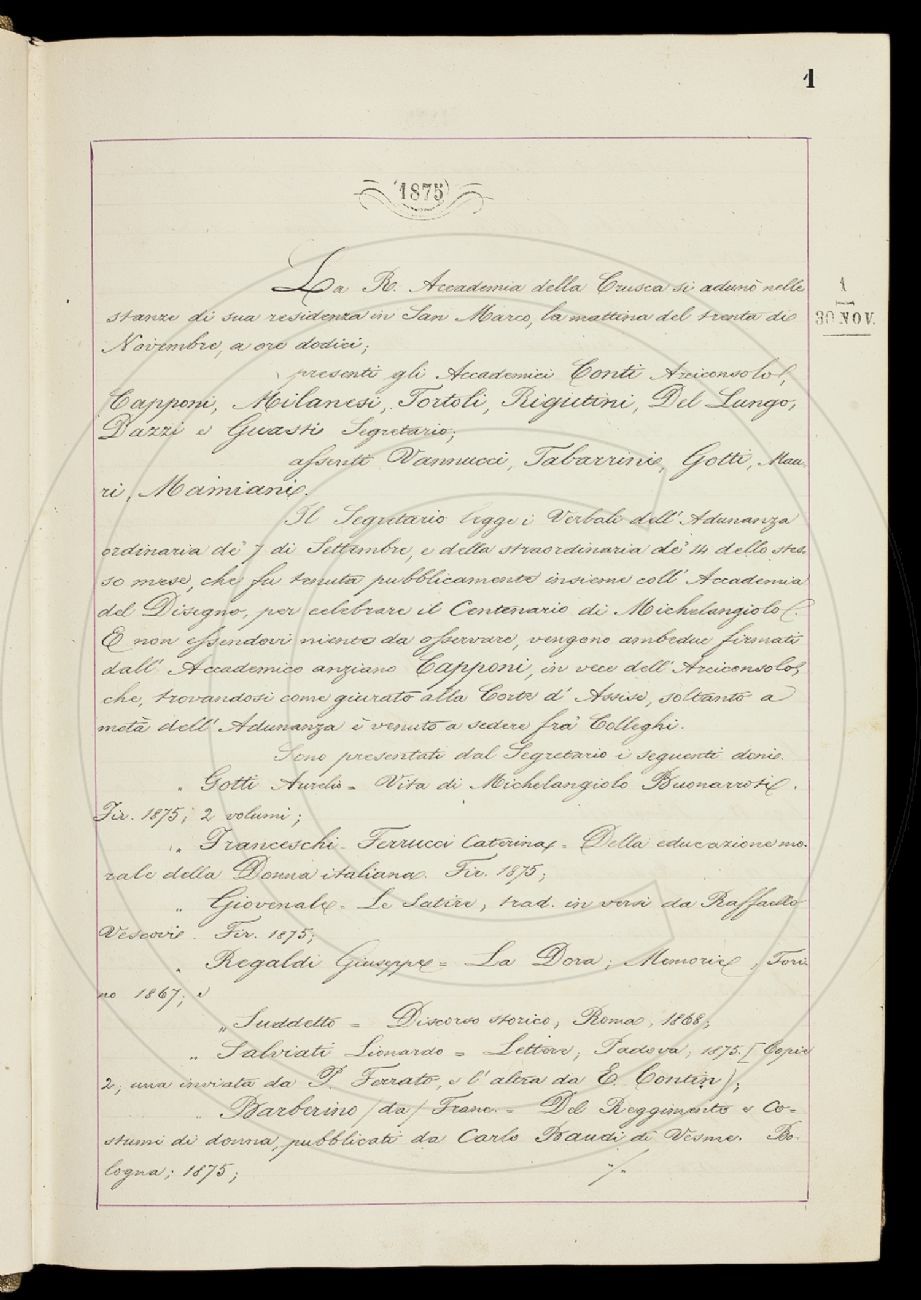 1
1875
1
30 NOV.
La R. Accademia della Crusca si adunò nelle
stanze di sua residenza in San Marco, la mattina del trenta di
Novembre, a ore dodici;
presenti gli Accademici Conti Arciconsolo,
Capponi, Milanesi, Tortoli, Rigutini, Del Lungo,
Dazzi e Guasti Segretario;
assenti Vannucci, Tabarrini, Gotti, Mau-
ri, Mamiani.
Il Segretario legge i Verbali dell' Adunanza
ordinaria de' 7 di Settembre, e della straordinaria de' 14 dello stes-
so mese, che fu tenuta pubblicamente insieme coll' Accademia
del Disegno, per celebrare il Centenario di Michelangiolo.
E non essendovi niente da osservare, vengono ambedue firmati
dall' Accademico anziano Capponi, in vece dell' Arciconsolo,
che, trovandosi come giurato alla Corte d' Assise, soltanto a
metà dell' Adunanza è venuto a sedere fra' Colleghi.
Sono presentati dal Segretario i seguenti doni.
„ Gotti Aurelio = Vita di Michelangiolo Buonarroti.
Fir. 1875; 2 volumi;
„ Franceschi - Ferrucci Caterina = Della educazione mo-
rale della Donna italiana. Fir. 1875;
„ Giovenale = Le Satire, trad. in versi da Raffaello
Vescovi. Fir. 1875;
„ Regaldi Giuseppe = La Dora; Memorie, Tori-
no 1867; e
„ Suddetto = Discorso storico, Roma, 1868;
„ Salviati Lionardo = Lettere; Padova, 1875. [Copie
2; una inviata da P. Ferrato, e l' altra da E. Contin);
„ Barberino (da) Franc. = Del Reggimento e Co-
stumi di donna, pubblicati da Carlo Baudi di Vesme. Bo-
logna; 1875;
./.